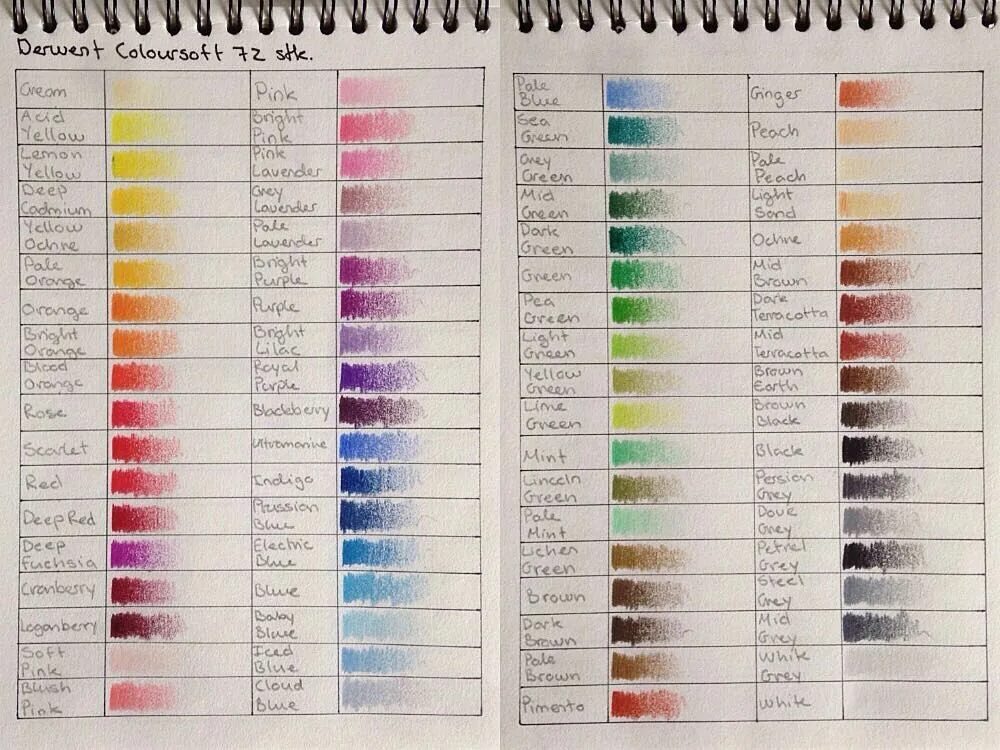 Derwent Coloursoft 72 stk.
Cream
Acid
Yellow
Lemon
Yellow
Deep
Cadmium
Yellow
Ochre
Pale
Orange
Orange
Bright
Orange
Blood
Orange
Rose
Scarlet
Red
Deep Red
Deep
Fuchsia
Cranberry
Loganberry
Soft
Pink
Blush
Pink
Pink
Bright
Pink
Pink
Lavender
Grey
Lavender
Pale
Lavender
Bright
Purple
Purple
Bright
Lilac
Royal
Purple
Blackberry
Ultramarine
Indigo
Prussian
Blue
Electric
Blue
Blue
Baby
Blue
Iced
Blue
Cloud
Blue
Pale
Blue
Sea
Green
Grey
Green
Mid
Green
Dark
Green
Green
Pea
Green
Light
Green
Yellow
Green
Lime
Green
Mint
Lincoln
Green
Pale
Mint
Lichen
Green
Brown
Dark
Brown
Pale
Brown
Pimento
Ginger
Peach
Pale
Peach
Light
Sand
Ochre
Mid
Brown
Dark
Terracotta
Mid
Terracotta
Brown
Earth
Brown
Black
Black
Persian
Grey
Dove
Grey
Petrel
Grey
Steel
Grey
Mid
Grey
White
Grey
White